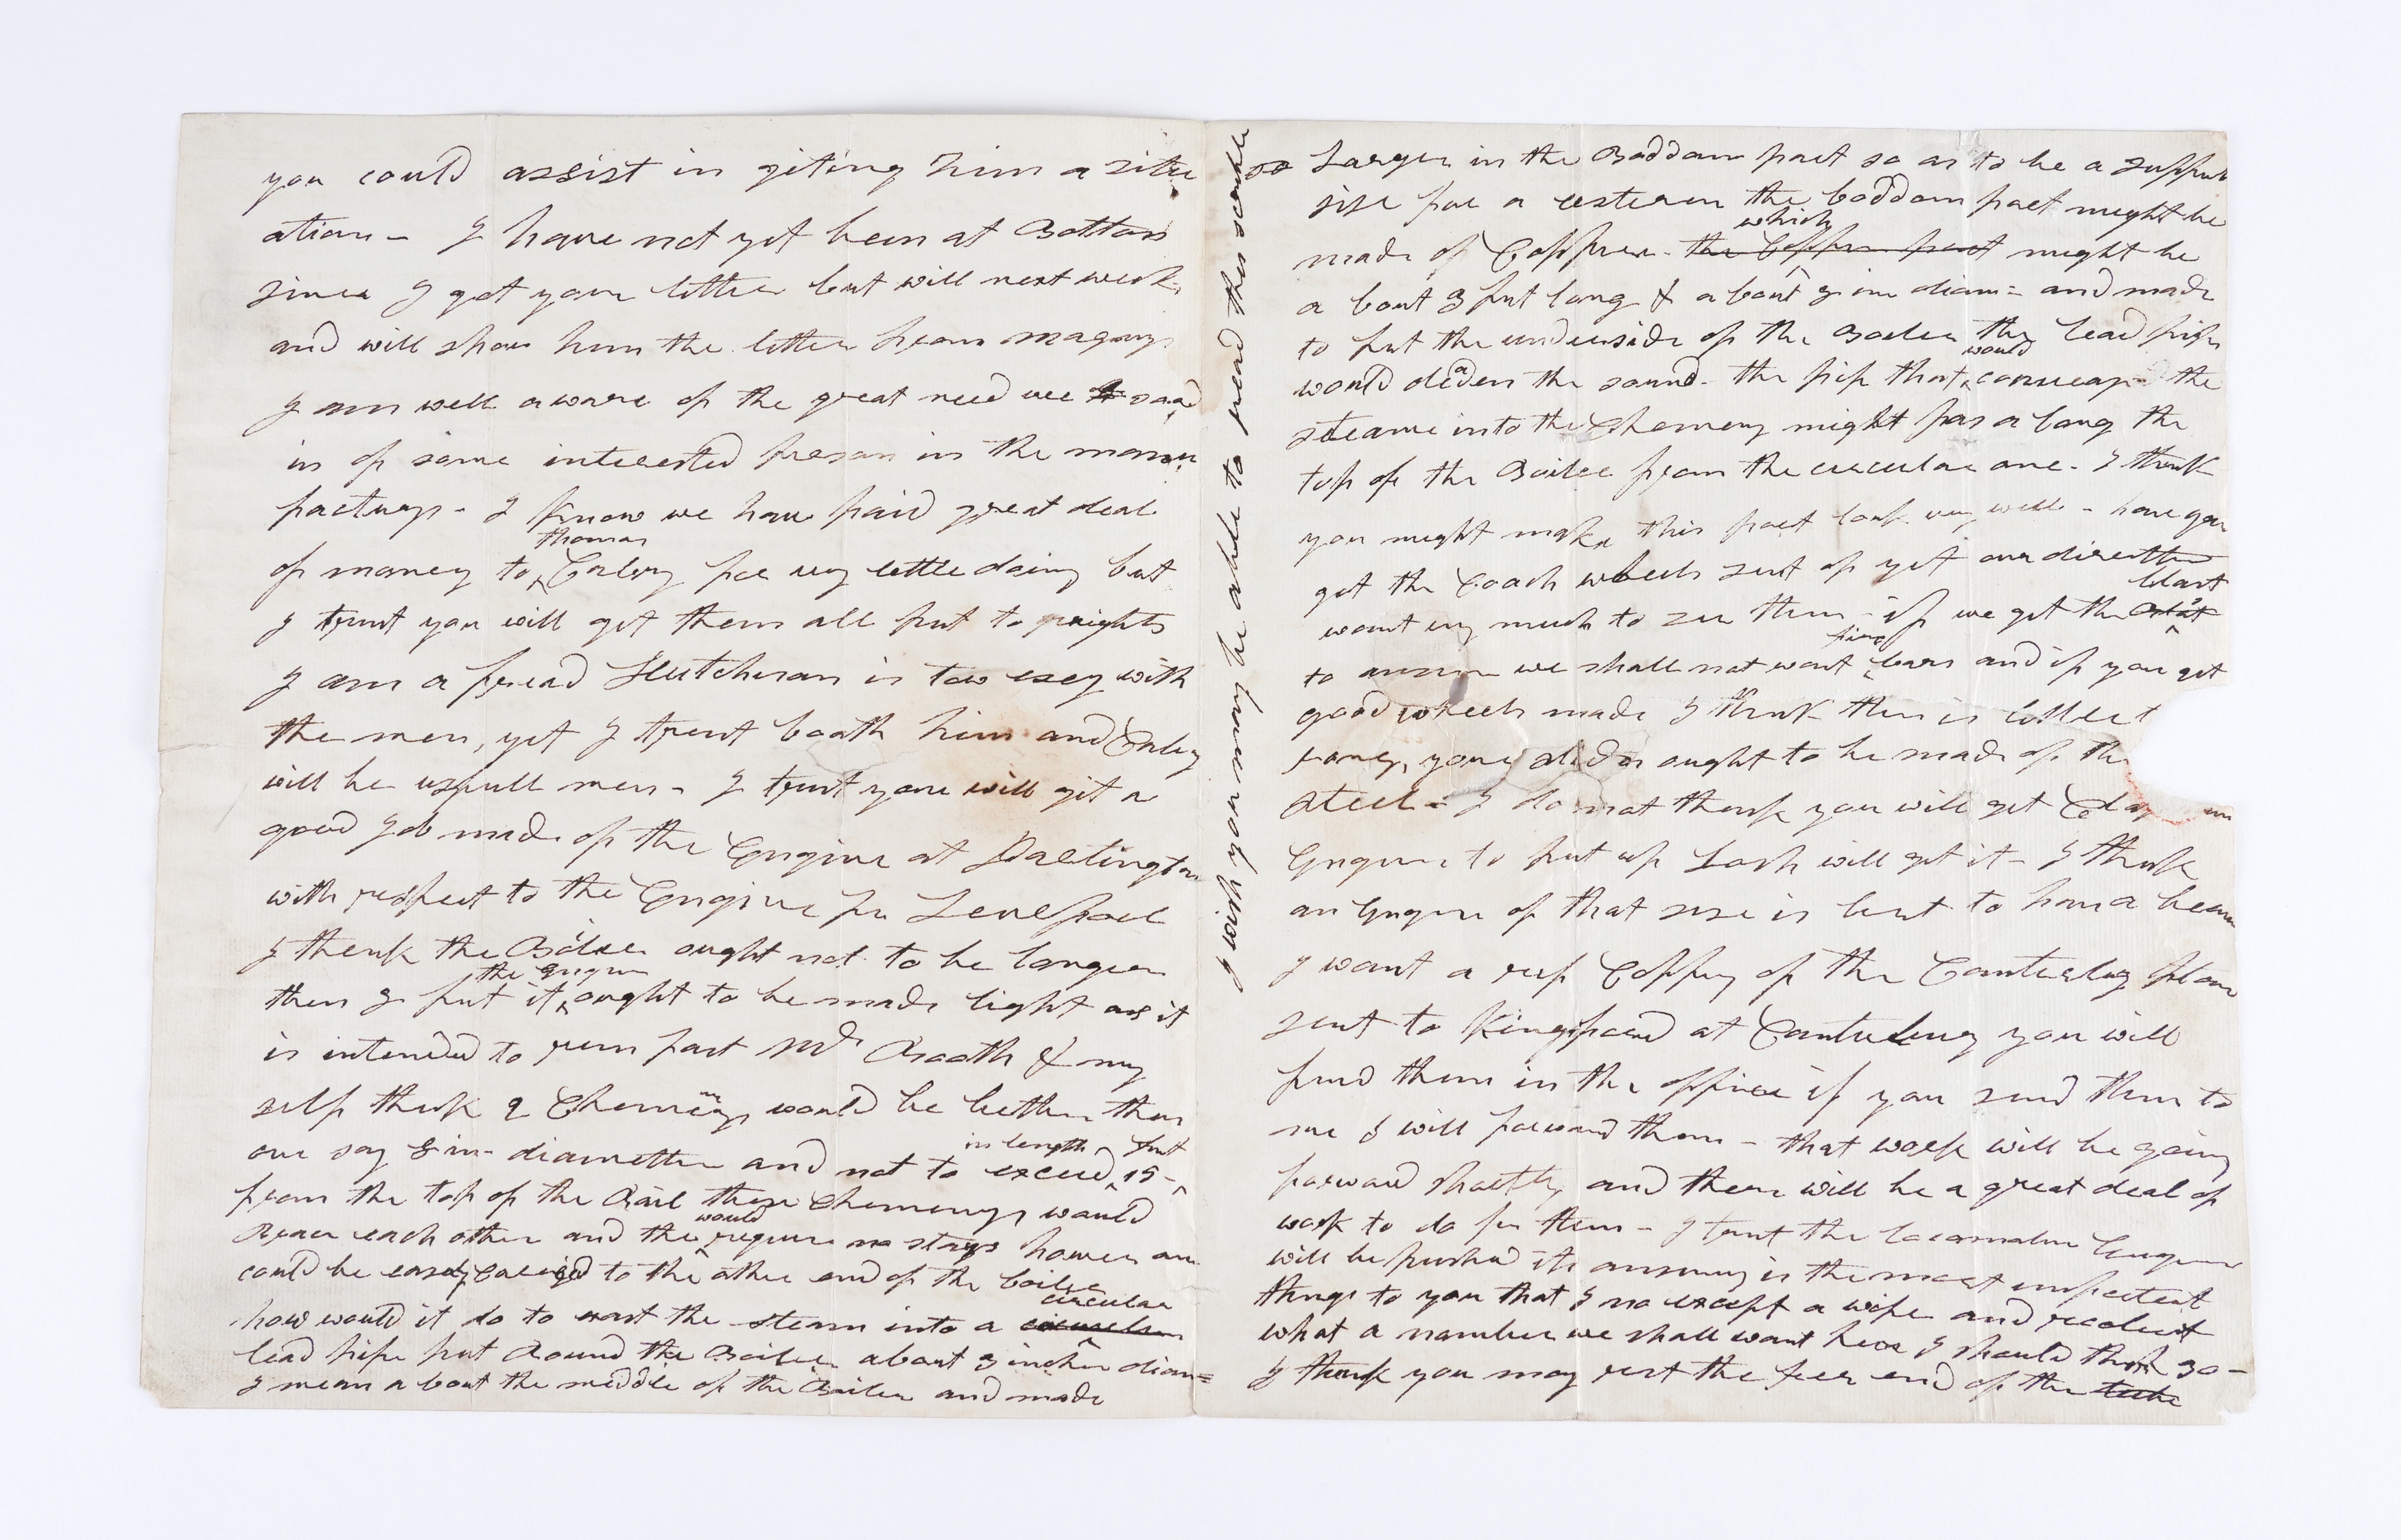 you could assist in giting him a situ
ation - I have not yet been at Bolton
since I got your letter but will next week
and will show him the letter from
I am well aware of the great need we stand
in of some interested preson in the manu
factuary - I know we have paid great deal
of money to thomas very little doing but
I trust you will get them all put to wrights
I am a fread Hutcheson is tow esey with
the men, yet I trust booth him and
will be usfull men - I trust youe will git a
good Job made of the Engine at Darlington
with respect to the Engine for Leverpool
I think the Boiler ought not to be longer
then feet it the engine ought to be made light as it
is intended to run fast Mr Booth & my
self think 2 would be better than
one say 8 in- diametter and not to exceed in length 15 - feet
from the top of the Rail these Chemenys would
each other and the would require no stays however one
could be easely to the other end of the boiler
how would it do to exast the steam into a circular
lead pipe put Round the Boiler about 3 inches diam=
I mean a bout the meddle of the Boiler and made
I wish you may be able to read this scrable
Larger in the Boddam part so as to be a suffient
sise for a cesteren the boddom part might be
made of Copper - the Copper part which might be
a bout 3 feet long & a bout in diam= and made
to fit the underside of the Boiler the lead pipe
would deaden the sound - the pipe that would the
steame into the Chemeny might pas a long the
top of the Boiler from the circular one - I think
you might make this part look very well - have you
got the Coach wheels sent of yet our directters
want very much to see them - if we get the blast
to answer we shall not want fine bars and if you get
good wheels made I think ther is
ought to be made of the
steel - I do not think you will get
Engine to put up Losh will get it - I think
an Engine of that sise is best to have a beam
I want a Coppey of the Canterbry plan
sent to Kingsford at Canterbury you will
find them in the offiice if you send them to
me I will forward them - that work will be going
forward shortly and there will be a great deal of
work to do for them - I trust the locomotive Engine
will be pushed its answering is the most importent
things to you that I no except a wife and recolect
what a number we shall want here I should think 30 -
I think you may rest the feer end of the tube